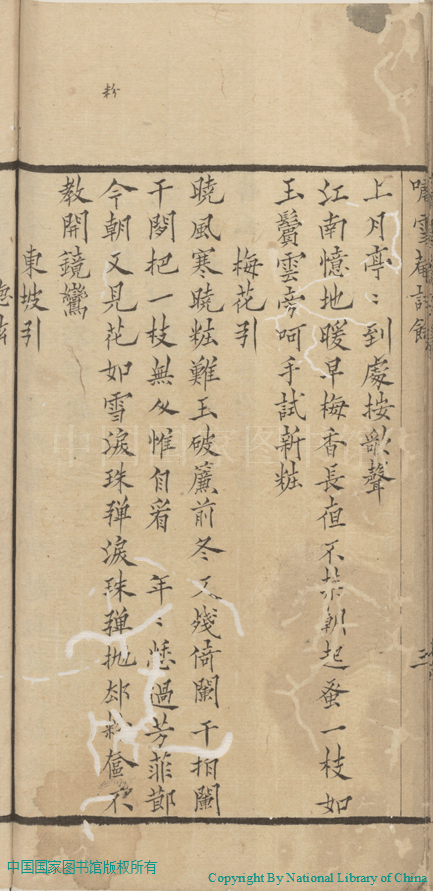 粉
上月亭〻到處按歌聲
江南憶地暖早梅香長恒不禁朝起蚤一枝如
玉鬢雲旁呵手試新粧
梅花引
曉風寒曉粧難玉破簾前冬又殘倚闌干拍闌
干閿把一枝無久惟自看 年〻愁過芳菲節
今朝又見花如雪淚珠彈淚珠彈拋却粉奩不
教開鏡鸞
東坡引
三
中国国家图书馆
中国国家图书馆版权所有
Copyright By National Library of China